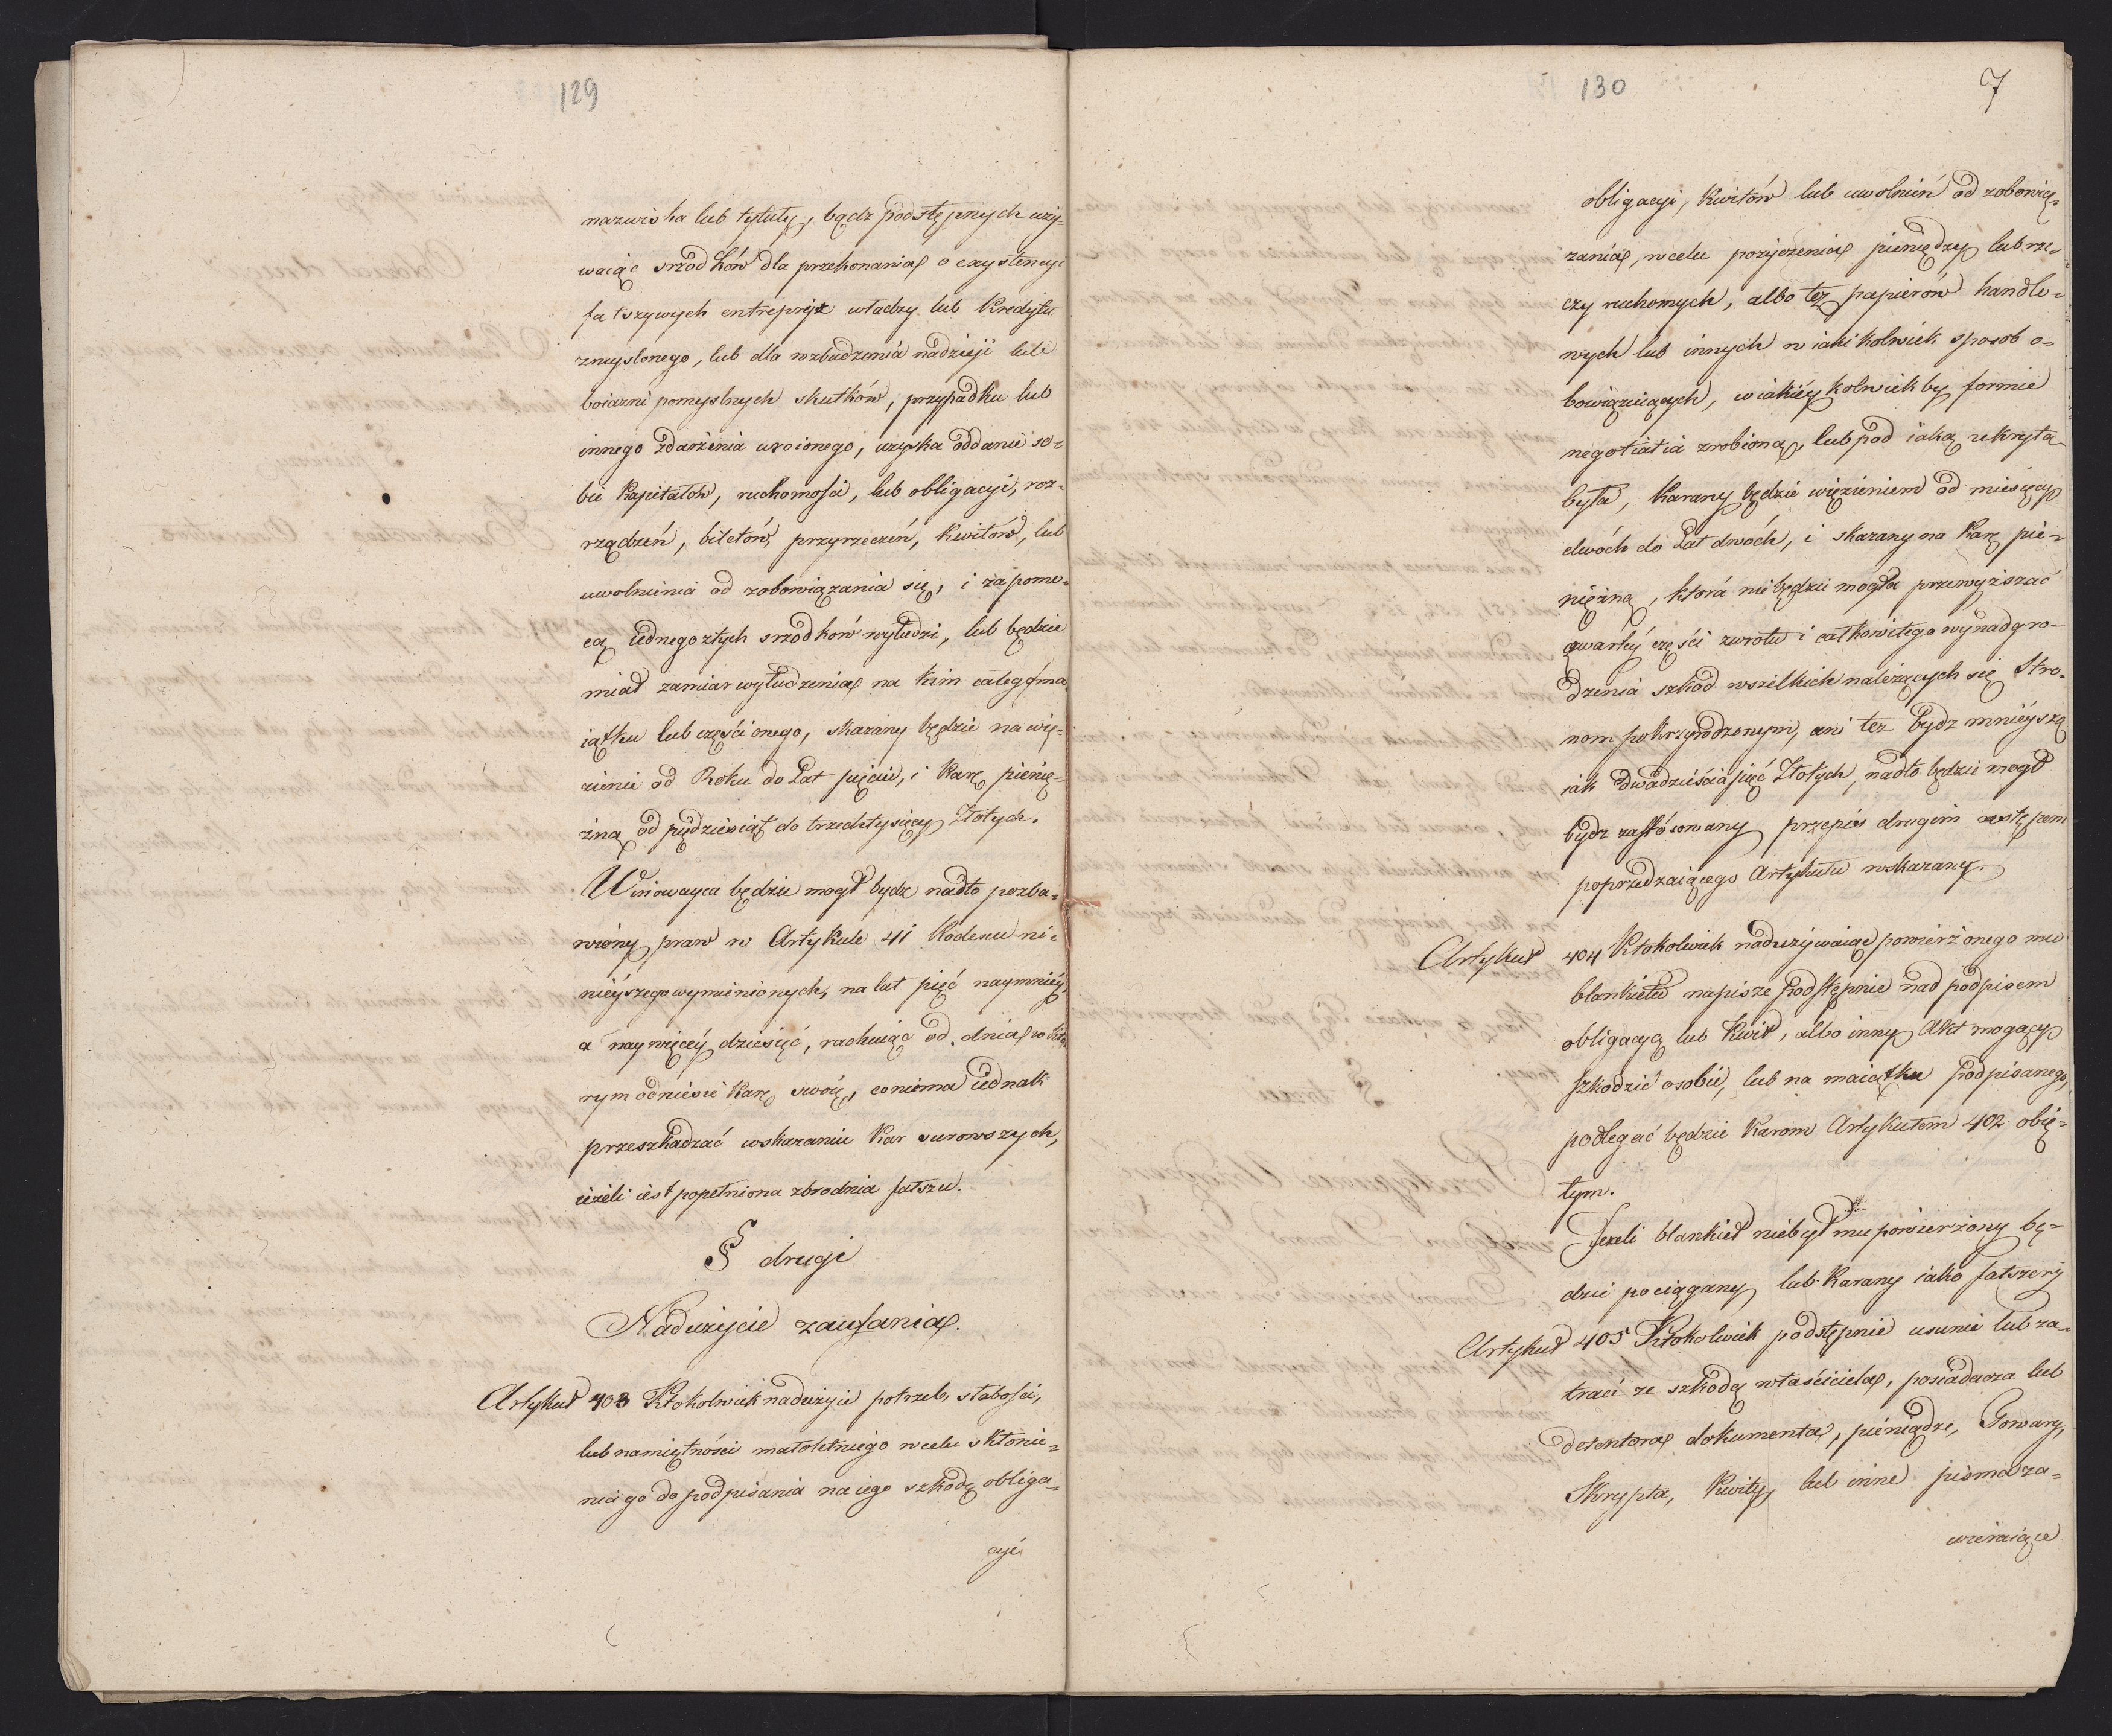 129
nazwiska lub tytuły, bądz podstępnych uży-
waiąc srzodków dla przekonania o exystencyi
fałszywych entrepryz władzy lub Kredytu
zmyslonego, lub dla wzbudzenia nadzieji lub
boiazni pomyslnych skutków, przypadku lub
innego zdarżenia uroionego, uzyska oddanie so-
bie Kapitałów, ruchomości, lub obligacyi, roz-
rządzeń, biletów, przyrzeczeń, Kwitów, lub
uwolnienia od zobowiązania się, i za pomo-
cą iednego ztych srzodków wyłudzi, lub będzie
miał zamiar wyłudzenia na kim całego ma-
iątku lub części onego, skazany będzie na wię-
zienie od Roku do Lat pięciu, i Karę pienię-
żną od pędziesiąt do trzechtysięcy Złotych.
Winowayca będzie mogł bydz nadto pozba-
wiony praw w Artykule 41 Kodexu ni-
nieyszego wymienionych, na lat pięć naymniey,
a naywięcey dziesięć, rachuiąc od dnia w któ-
rym odniesie Karę swoię, co niema iednak
przeszkadzać wskazaniu Kar surowszych,
ieżeli iest popełniona zbrodnia fałszu.
§ drugi
Nadużycie zaufania.
Artykuł 403 Ktokolwiek nadużyie potrzeb, słabości,
lub namiętności małoletniego w celu skłonie-
nia go do podpisania na iego szkodę obliga-
cyi
130
7
obligacyi, Kwitów lub uwolnień od zobowią-
zania, w celu pożyczenia pieniędzy lub rze-
czy ruchomych, albo tez papierów handlo-
wych lub innych w iakikolwiek sposob o-
bowiązuiących, w iakiéykolwiek by formie
negotiatia zrobiona, lub pod iaką ukryta
była, Karany będzie więzieniem od miesięcy
dwóch do Lat dwóch, i skazany na Karę pie-
niężną, która nie będzie mogła przewyższać
czwartéy części zwrotu i całkowitego wynadgro-
dzenia szkod wszelkich należących się Stro-
nom pokrzywdzonym, ani tez bydz mnieyszą
iak dwadzieścia pięć Złotych, nadto będzie mogł
bydz zastósowany przepis drugim wstępem
poprzedzaiącego Artykułu wskazany.
Artykuł 404 Ktokolwiek nadużywaiąc powierżonego mu
blankietu napisze podstępnie nad podpisem
obligacyą lub Kwit, albo inny Akt mogący
szkodzić osobie, lub na maiątku podpisanego,
podlegać będzie Karom Artykułem 402 obię-
tym.
Jezeli blankiet niebył mu powierżony bę-
dzie pociągany lub Karany iako fałszerz
Artykuł 405 Ktokolwiek podstępnie usunie lub za-
traci ze szkodą własciciela, posiadacza lub
detentora dokumenta, pieniądze, Towary,
Skrypta, Kwity, lub inne pisma za-
wieraiące